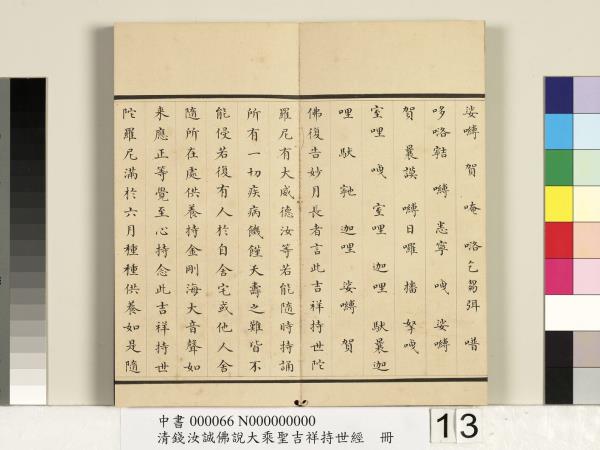 娑嚩 賀 唵 咯乞芻弭 喈
哆咯𪘨 嚩 悉寧 㗚 娑嚩
賀 曩謨 嚩日囉 播 拏㗚
室哩 㗚 室哩 迦哩 馱曩迦
哩 馱馳 迦哩 娑嚩 賀
佛復告妙月長者言此吉祥持世陀
羅尼有大威德汝等若能隨時持誦
所有一切疾病饑饉夭壽之難皆不
能侵若復有人於自舍宅或他人舍
隨所在處供養持金剛海大音聲如
來應正等覺至心持念此吉祥持世
陀羅尼滿於六月種種供養如是隨
中書 000066 N000000000
清錢汝誠佛說大乘聖吉祥持世經 冊
13